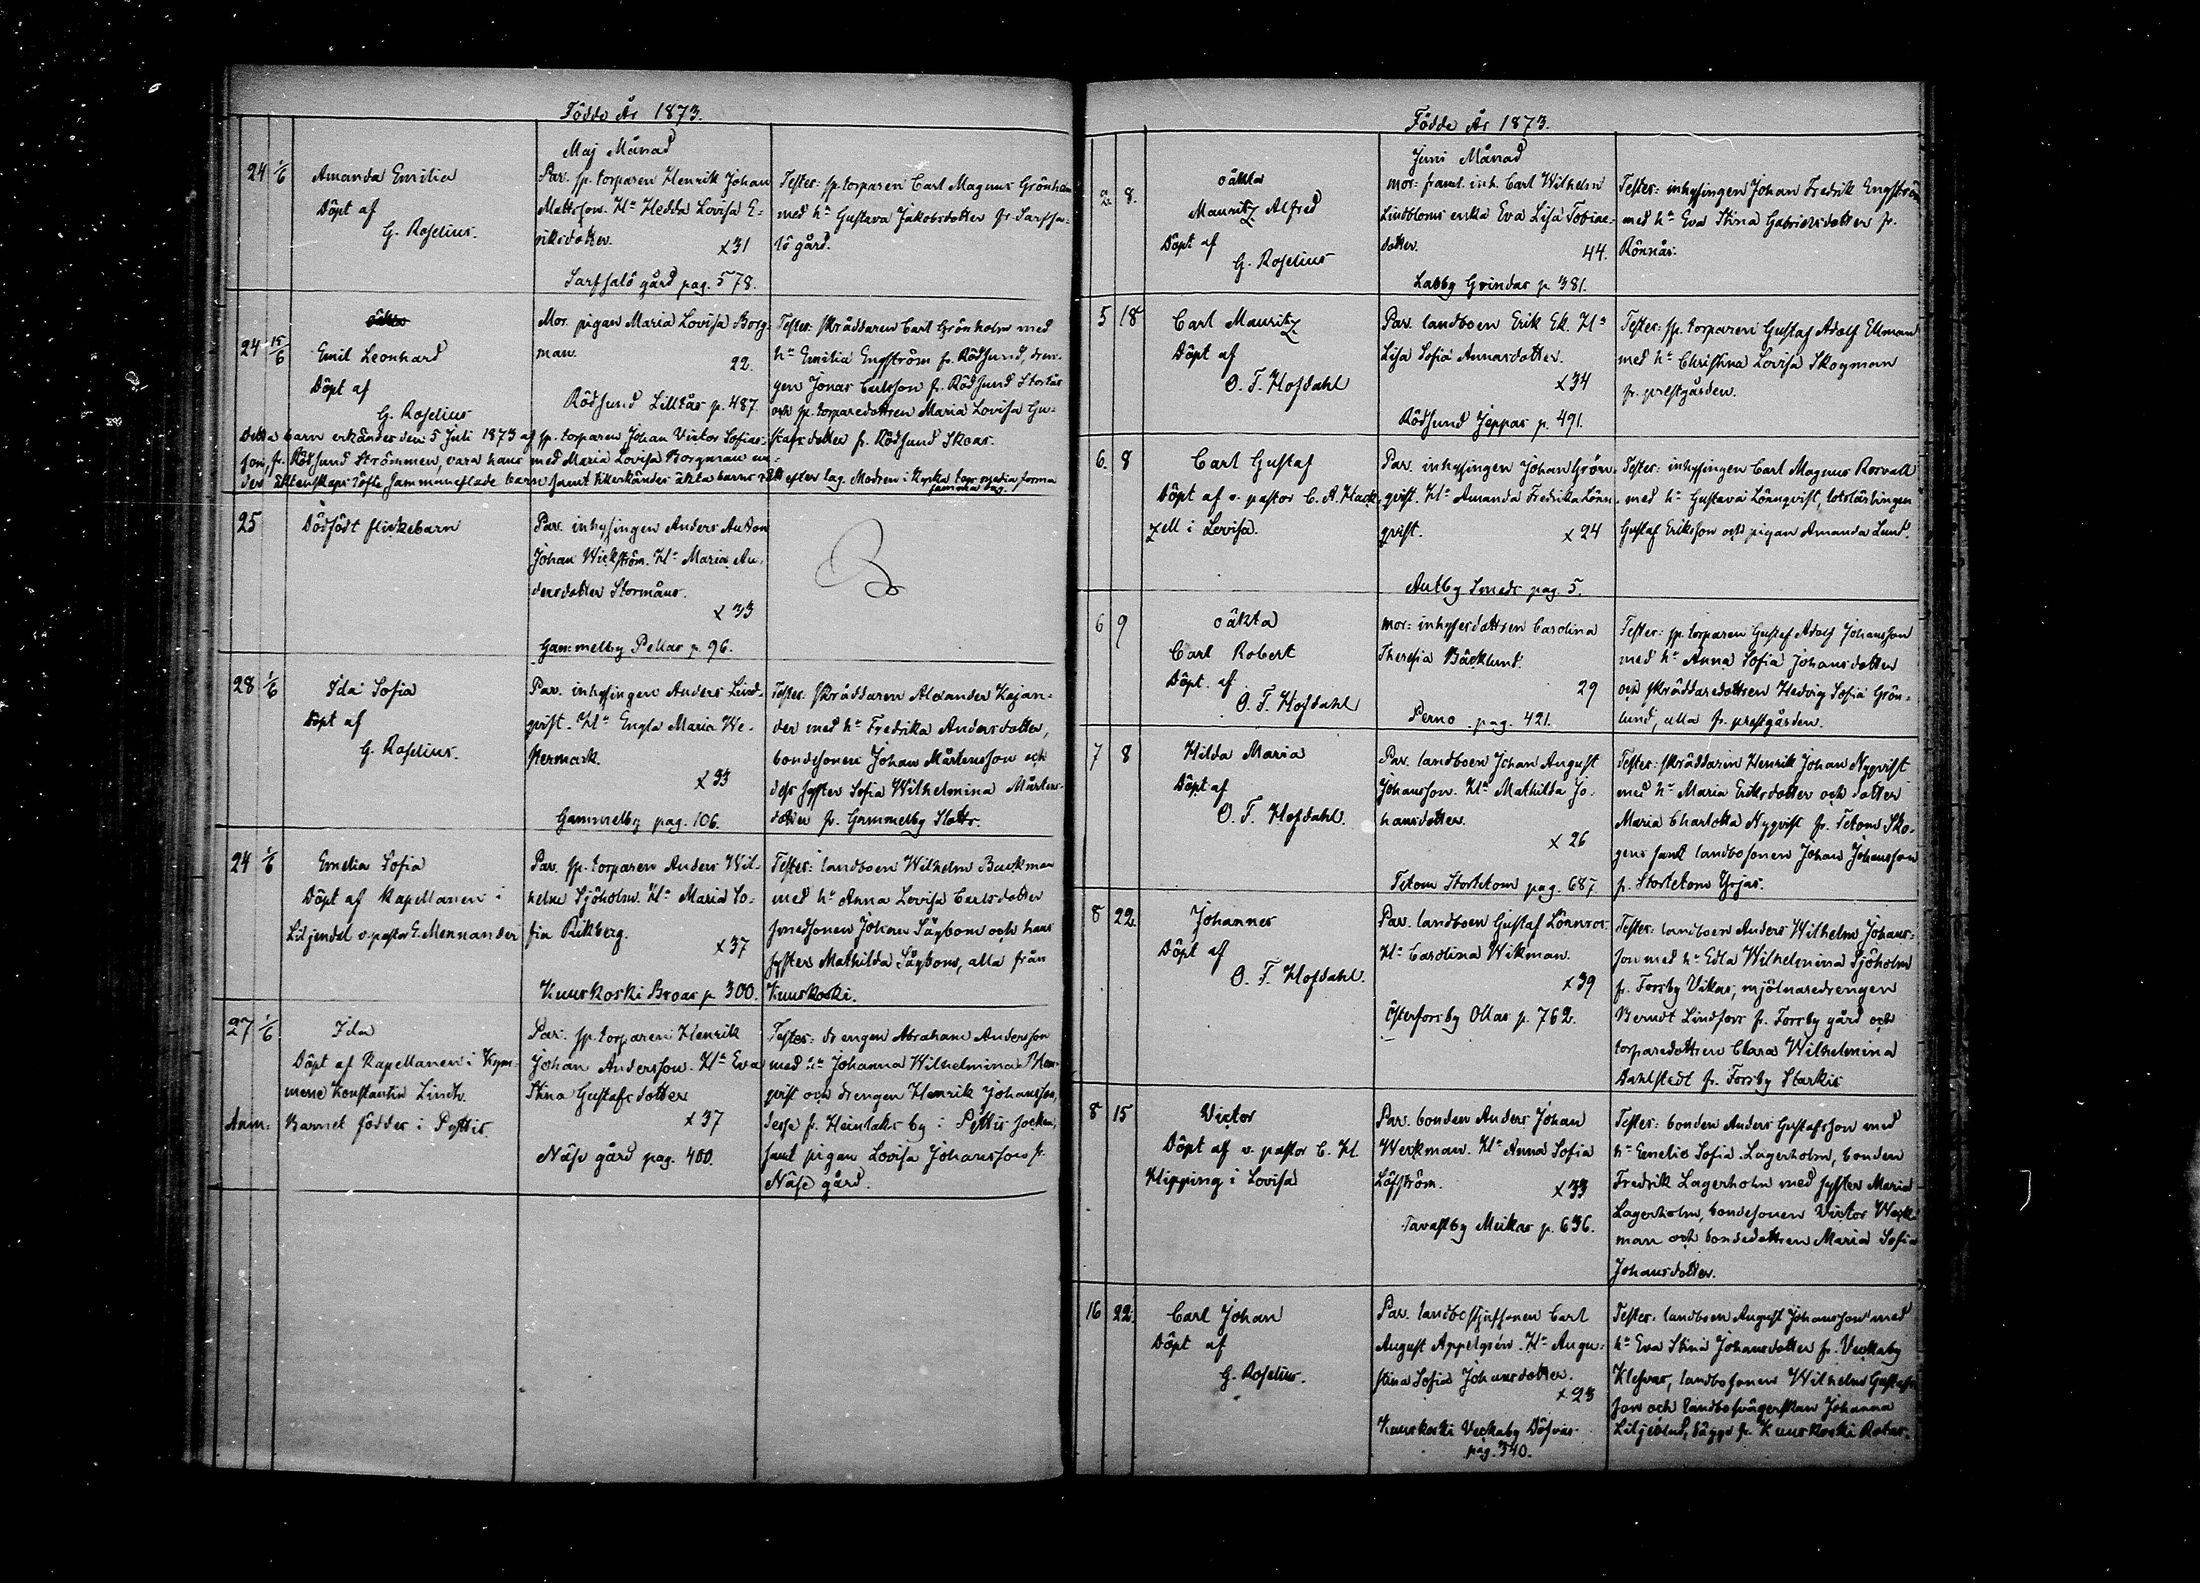 Födde År 1873.
Maj Månad
24 1/6 Amanda Emilia
Döpt af
G. Roselius.
Par. sp. torparen Henrik Johan
Mattsson. Ha Hedda Lovisa E-
riksdotter.
x31
Sarfsalö gård pag. 578.
Tester: sp. torparen Carl Magnus Grönholm
med ha Gustava Jakobsdotter fr. Sarfsa-
lö gård.
24 15/6 Emil Leonhard
Döpt af
G. Roselius
Mor. pigan Maria Lovisa Borg-
man.
22.
Rödsund Lillkås p. 487.
Tester: skräddaren Carl Grönholm med
ha Emilia Engström fr. Rödsund, dren-
gen Jonas Carlsson fr. Rödsund Storkås
och sp. torparedottren Maria Lovisa Gu-
stafsdotter fr. Rödsund Skoas.
Detta barn erkändes den 5 Juli 1873 af sp. torparen Johan Victor Sofias-
son, fr. Rödsund Strömmen, vara hans med Maria Lovisa Borgman un-
der äktenskaps löfte sammanaflade barn samt tillerkändes äkta barns rätt efter lag. Modren i Kyrka togs media forma
samma dag.
25 Dödfödt flickebarn
Par. inhysingen Anders Anton
Johan Wickström. Ha Maria An-
dersdotter Stormåns.
x33
Gammelby Pellas p. 96.
28 1/6 Ida Sofia
Döpt af
G. Roselius.
Par. inhysingen Anders Lind-
qvist. Ha Engla Maria We-
stermark.
x33
Gammelby pag. 106.
Tester: skräddaren Alexander Kajan-
der med ha Fredrika Andersdotter,
bondsonen Johan Mårtensson och
dess syster Sofia Wilhelmina Mårtens-
dotter fr. Gammelby Slotts.
24 1/6 Emelia Sofia
Döpt af Kapellanen i
Liljendal v. pastor E. Mennander
Par. sp. torparen Anders Wil-
helm Sjöholm. Ha Maria So-
fia Rikberg.
x37
Kuuskoski Broas p. 300.
Tester: landboen Wilhelm Backman
med ha Anna Lovisa Carlsdotter
smedsonen Johan Sågbom och hans
syster Mathilda Sågbom, alla från
Kuuskoski.
27 1/6 Ida
Döpt af Kapellanen i Kym-
mene Konstantin Lindh.
Anm: Barnet föddes i Pyttis.
Par. sp. torparen Henrik
Johan Andersson. Ha Eva
Stina Gustafsdotter
x37
Näse gård pag. 400.
Tester: drengen Abraham Andersson
med ha Johanna Wilhelmina Blom-
qvist och drengen Henrik Johansson,
desse fr. Heinlaks by i Pyttis socken,
samt pigan Lovisa Johansson fr.
Näse gård.
Födde År 1873.
Juni Månad
2 8. oäkta
Mauritz Alfred
Döpt af
G. Roselius
mor: framl. inh. Carl Wilhelm
Lindbloms enka Eva Lisa Tobias-
dotter.
44.
Labby Grindas p. 381.
Tester: inhysingen Johan Fredrik Engström
med ha Eva Stina Gabrielsdotter fr.
Rönnäs.
5 18 Carl Mauritz
Döpt af
O. T. Hofdahl
Par. landboen Erik Ek. Ha
Lisa Sofia Annasdotter.
x34
Rödsund Jeppas p. 491.
Tester: sp. torparen Gustaf Adolf Ekman
med ha Christina Lovisa Skogman
fr. prestgården.
6. 8 Carl Gustaf
Döpt af v. pastor C. A. Hack-
zell i Lovisa.
Par. inhysingen Johan Grön-
qvist. Ha Amanda Fredrika Lönn-
qvist.
x24
Antby Smeds pag 5.
Tester: inhysingen Carl Magnus Rosvall
med ha Gustava Lönnqvist, lotslärlingen
Gustaf Eriksson och pigan Amanda Lund.
6 9 oäkta
Carl Robert
Döpt af
O. T. Hofdahl
mor: inhysesdottren Carolina
Theresia Bäcklund.
29
Perno pag. 421.
Tester: sp. torparen Gustaf Adolf Johansson
med ha Anna Sofia Johansdotter
och skräddaredottren Hedvig Sofia Grön-
lund, alla fr. prestgården.
7 8 Hilda Maria
Döpt af
O. T. Hofdahl.
Par. landboen Johan August
Johansson. Ha Mathilda Jo-
hansdotter.
x26
Tetom Stortetom pag. 687.
Tester: skräddaren Henrik Johan Nyqvist
med ha Maria Eriksdotter och dotter
Maria Charlotta Nyqvist fr. Tetom Sko-
gens samt landbosonen Johan Johansson
fr. Stortetom Yrjas.
8 22. Johannes
Döpt af
O. T. Hofdahl.
Par. landboen Gustaf Lönnros
Ha Carolina Wikman.
x39
Österforsby Ollas p. 762.
Tester: landboen Anders Wilhelm Johans-
son med ha Edla Wilhelmina Sjöholm
fr. Forsby Vikas, mjölnaredrengen
Berndt Lindfors fr. Forsby gård och
torparedottren Clara Wilhelmina
Dahlstedt fr. Forsby Starkis
8 15 Victor
Döpt af v. pastor C. H.
Klipping i Lovisa
Par. bonden Anders Johan
Werkman. Ha Anna Sofia
Löfström.
x33
Tavastby Meikas p. 636.
Tester: bonden Anders Gustafsson med
ha Emelie Sofia Lagerholm, bonden
Fredrik Lagerholm med syster Maria
Lagerholm, bondesonen Victor Werk-
man och bondedottren Maria Sofia
Johansdotter.
16 22. Carl Johan
Döpt af
G. Roselius.
Par. landbostjufsonen Carl
August Appelgrén. Ha Augu-
stina Sofia Johansdotter.
x23
Kuuskoski Veckaby Döfvas
pag. 340.
Tester: landboen August Johansson med
ha Eva Stina Johansdotter fr. Veckaby
Klefvas, landbosonen Wilhelm Gustafs-
son och landbosvägerskan Johanna
Liljelund, bägge fr. Kuuskoski Rotas.